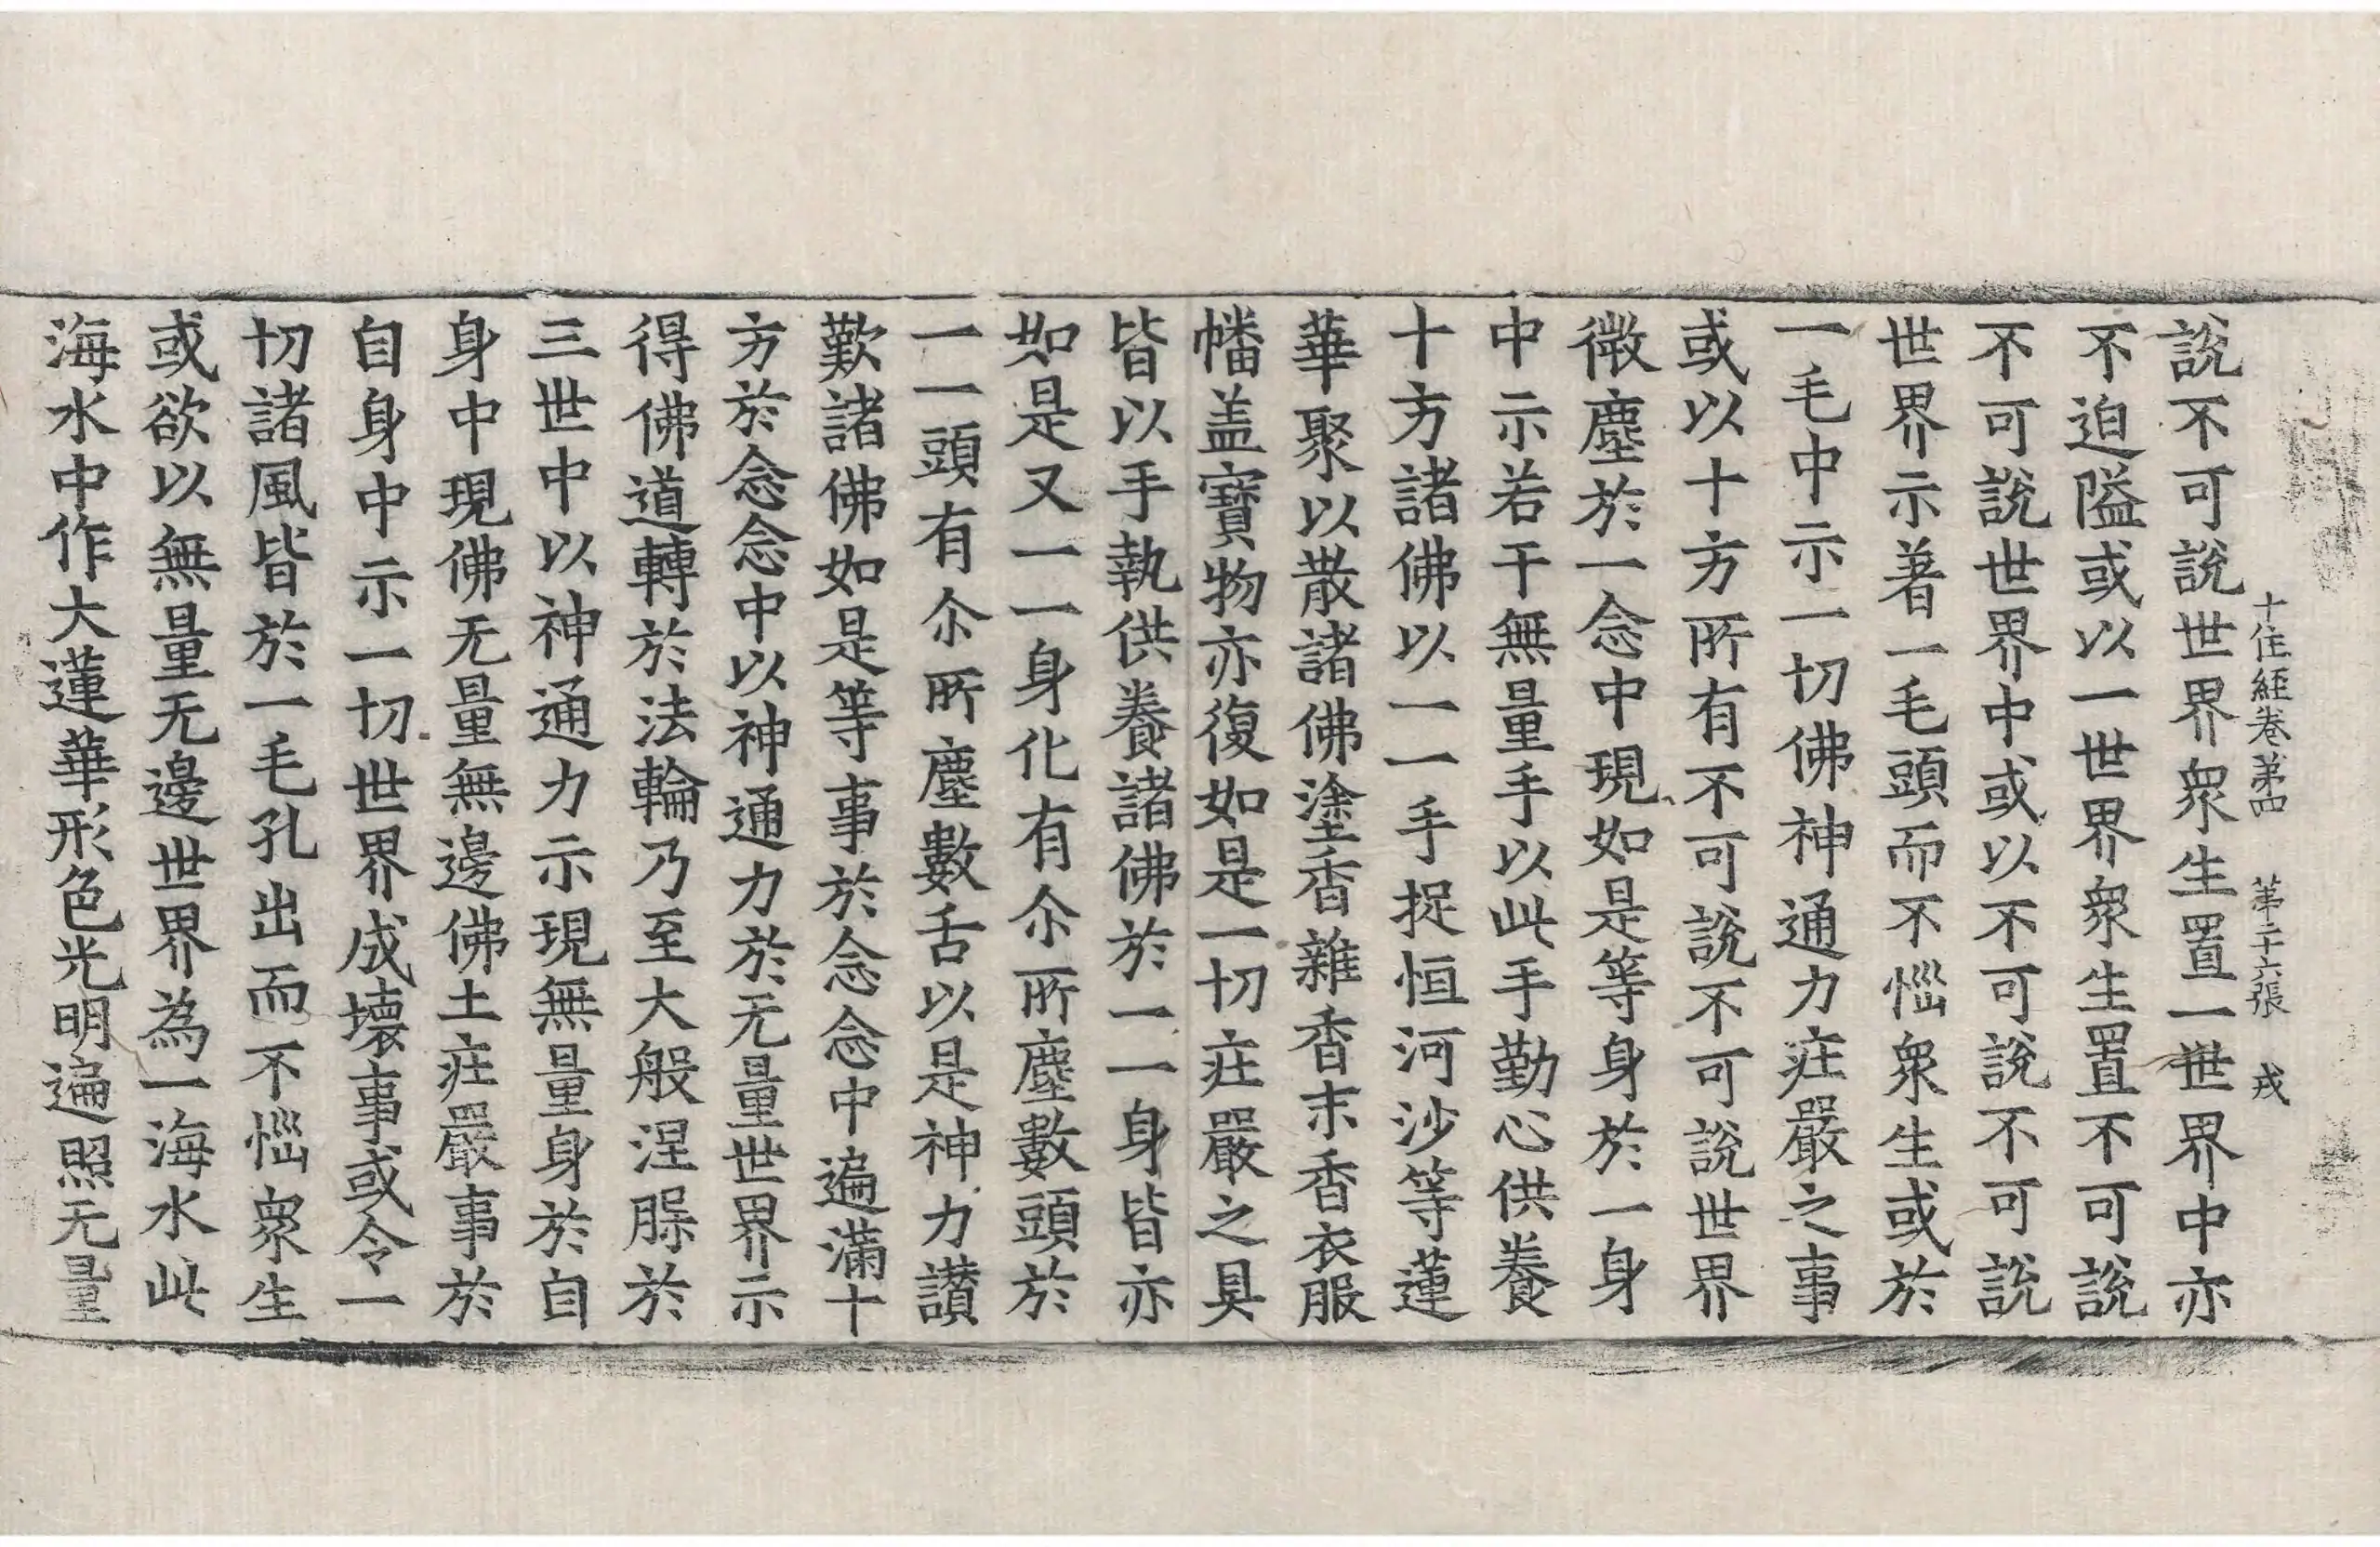 十住經卷第四　第二十六張　戎
說不可說世界衆生置一世界中亦
不迫隘或以一世界衆生置不可說
不可說世界中或以不可說不可說
世界示著一毛頭而不惱衆生或於
一毛中示一切佛神通力庄嚴之事
或以十方所有不可說不可說世界
微塵於一念中現如是等身於一身
中示若干無量手以此手勤心供養
十方諸佛以一一手捉恒河沙等蓮
華聚以散諸佛塗香雜香末香衣服
幡盖寶物亦復如是一切庄嚴之具
皆以手執供養諸佛於一一身皆亦
如是又一一身化有尒所塵數頭於
一一頭有尒所塵數舌以是神力讃
歎諸佛如是等事於念念中遍滿十
方於念念中以神通力於无量世界示
得佛道轉於法輪乃至大般涅槃於
三世中以神通力示現無量身於自
身中現佛无量無邊佛土庄嚴事於
自身中示一切世界成壞事或令一
切諸風皆於一毛孔出而不惱衆生
或欲以無量无邊世界為一海水此
海水中作大蓮華形色光明遍照无量